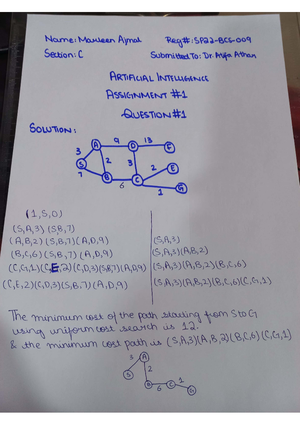 Name: Marleen Ajmal Reg#: SP22-BCS-009
Section: C Submitted To: Dr. Atifa Athar
ARTIFICIAL INTELLIGENCE
ASSIGNMENT #1
QUESTION#1
SOLUTION:
A 9 D 13 F
3 2 3 2 E
S
7 B 6 C 1 G
(1,S,0)
(S,A,3) (S,B,7)
(A,B,2) (S,B,7) (A,D,9) (S,A,3)
(B,C,6) (S,B,7) (A,D,9) (S,A,3) (A,B,2)
(C,G,1) (C,E,2) (C,D,3) (S,B,7) (A,D,9) (S,A,3) (A,B,2) (B,C,6)
(C,E,2) (C,D,3) (S,B,7) (A,D,9) (S,A,3) (A,B,2) (B,C,6) (C,G,1)
The minimum cost of the path starting from S to G
using uniform cost search is 12.
& the minimum cost path is (S,A,3) (A,B,2) (B,C,6) (C,G,1)
3 A
S 2
B 6 C 1 G